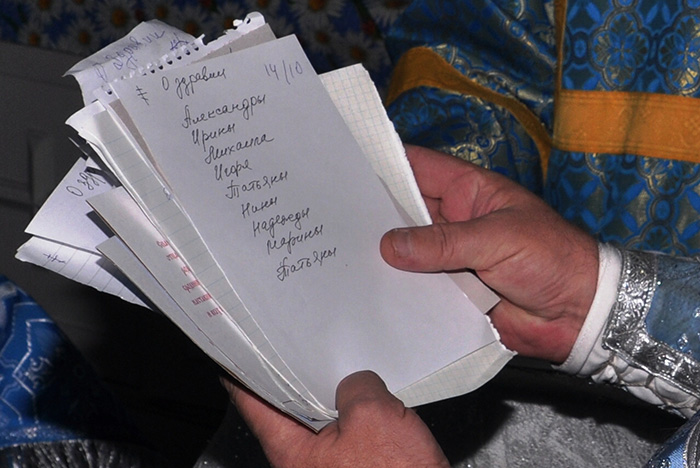 О здравии 14/10
Александры
Ирины
Михаила
Игоря
Татьяны
Нины
Надежды
Марины
Татьяны
О зд